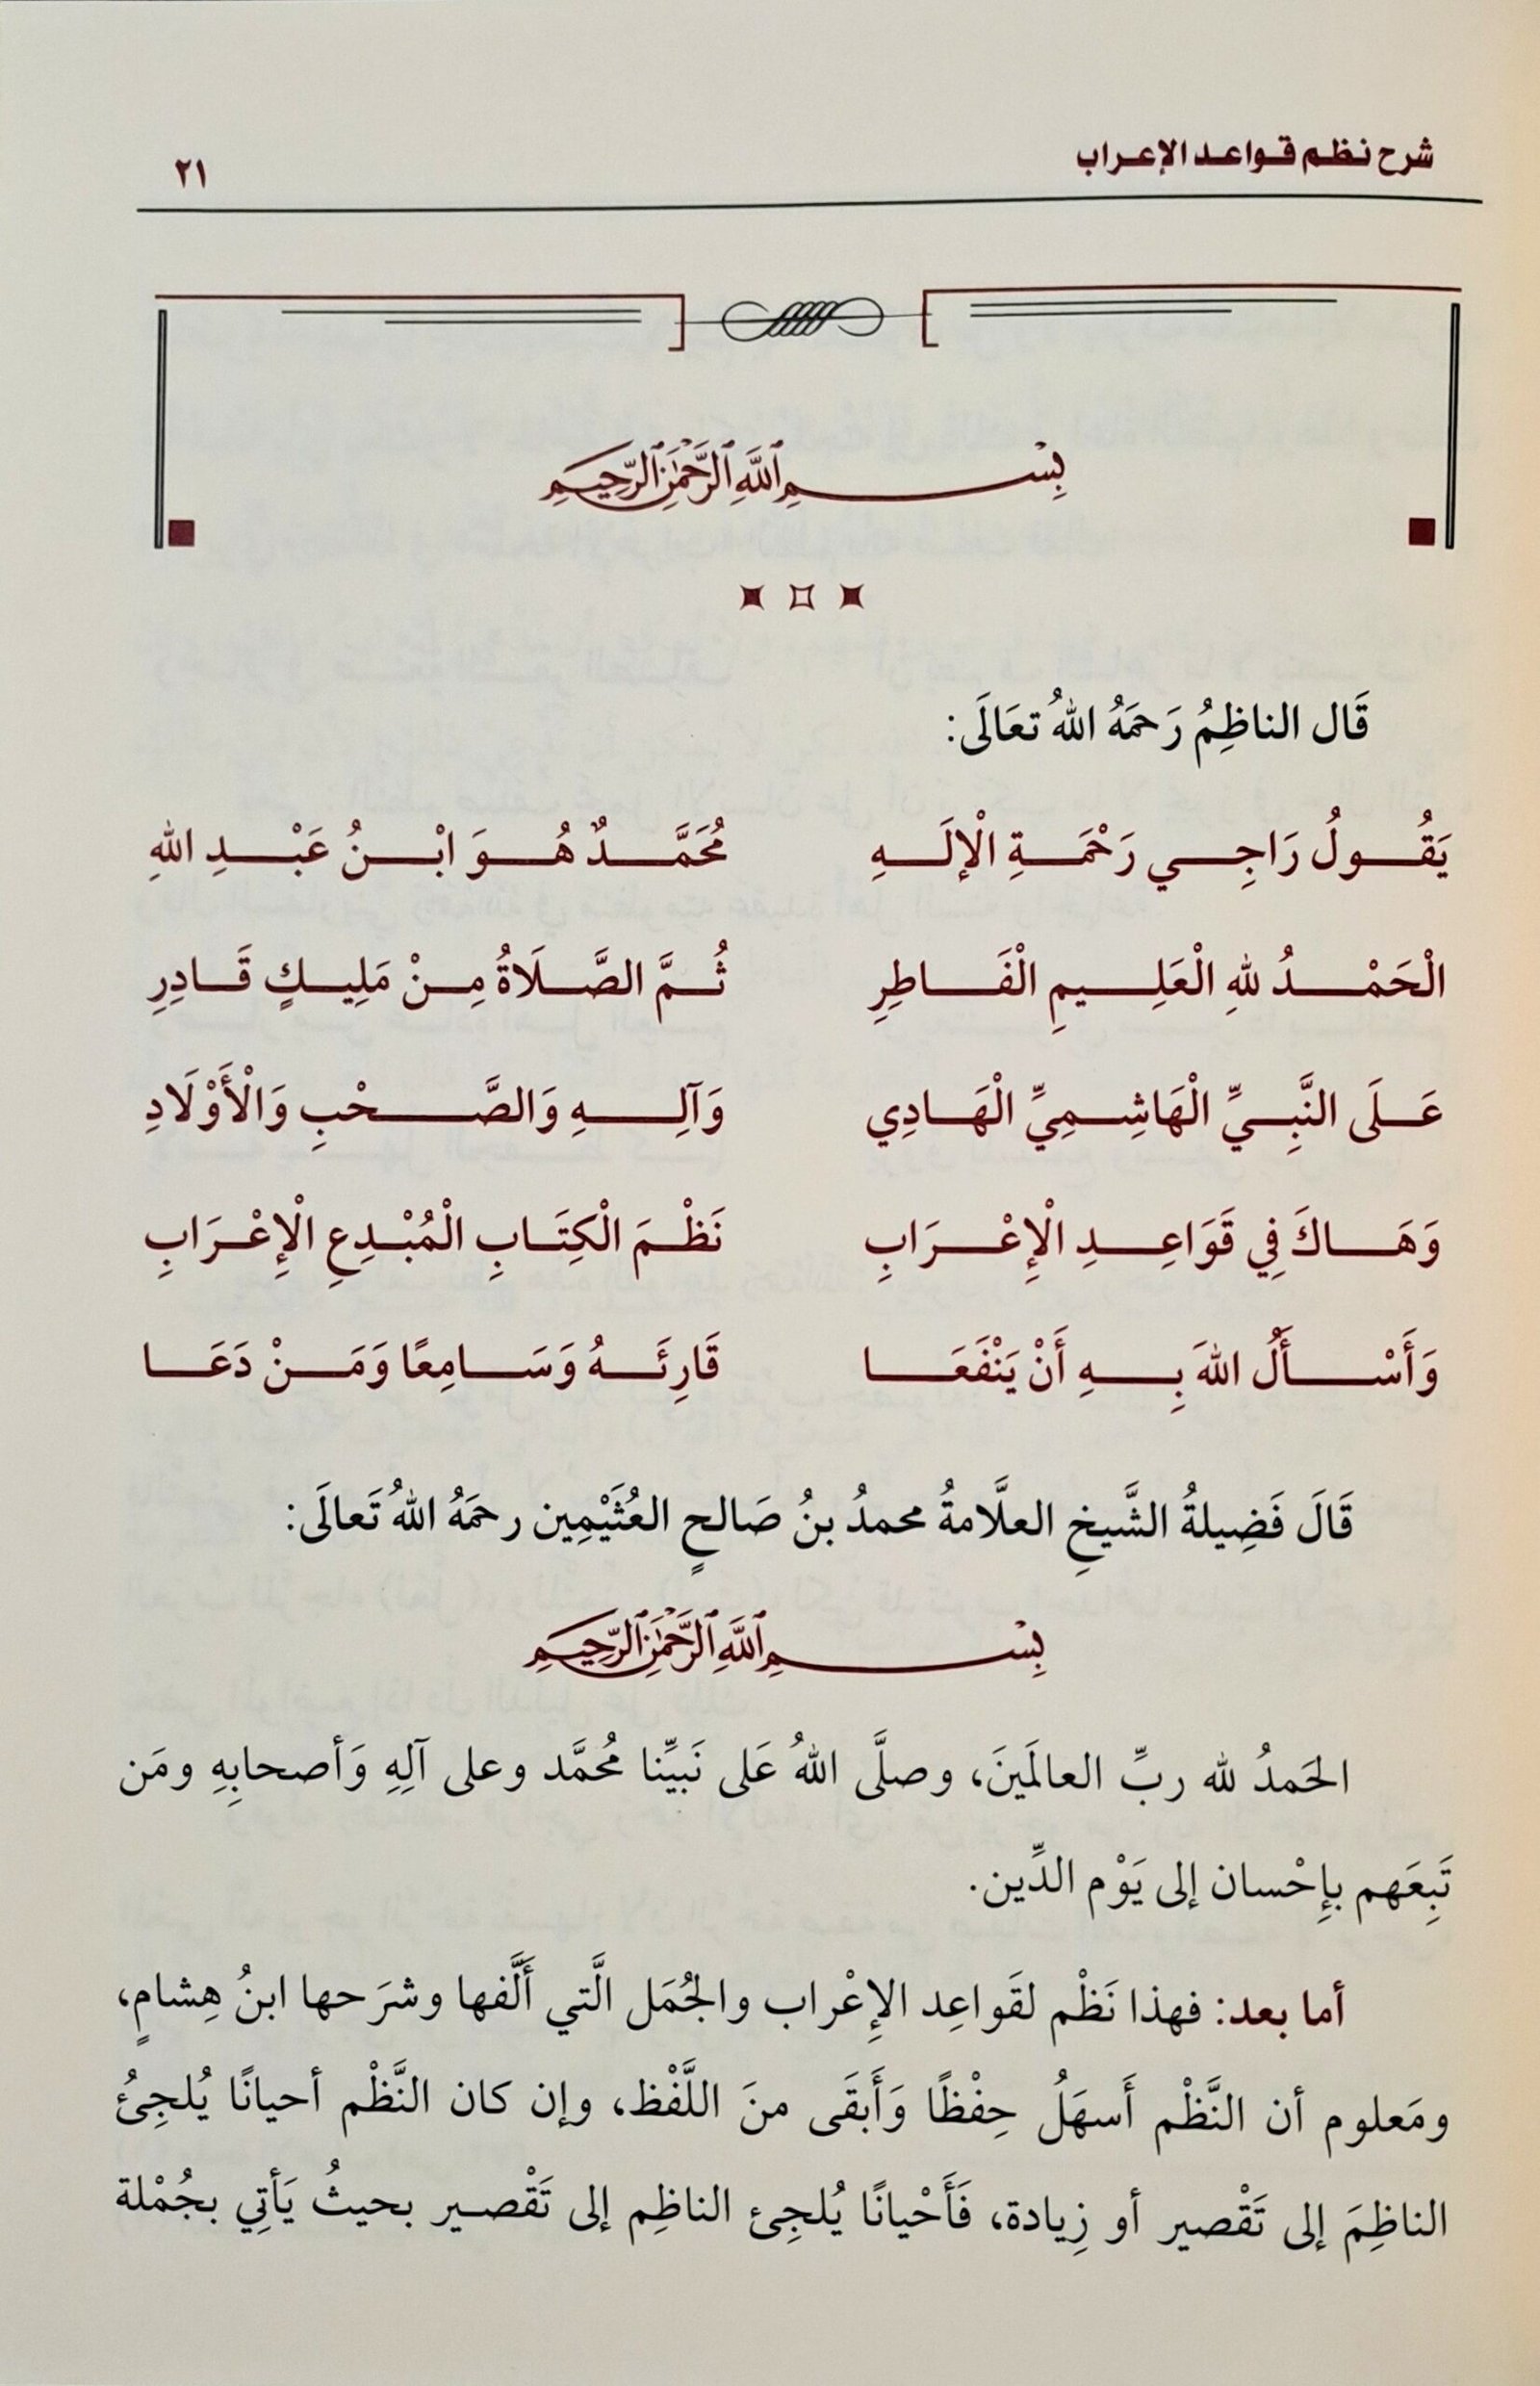 شرح نظم قواعد الإعراب ٢١
بِسْمِ اللَّهِ الرَّحْمَٰنِ الرَّحِيمِ
قَال الناظِمُ رَحمَهُ اللهُ تعَالَى:
يَقُولُ رَاجِي رَحْمَةِ الْإلَهِ مُحَمَّدٌ هُوَ ابْنُ عَبْدِ اللهِ
الْحَمْدُ للهِ الْعَلِيمِ الْفَاطِرِ ثُمَّ الصَّلَاةُ مِنْ مَلِيكٍ قَادِرِ
عَلَى النَّبِيِّ الْهَاشِمِيِّ الْهَادِي وَآلِهِ وَالصَّحْبِ وَالْأَوْلَادِ
وَهَاكَ فِي قَوَاعِدِ الْإِعْرَابِ نَظْمَ الْكِتَابِ الْمُبْدِعِ الْإِعْرَابِ
وَأَسْأَلُ اللهَ بِهِ أَنْ يَنْفَعَا قَارِئَهُ وَسَامِعًا وَمَنْ دَعَا
قَالَ فَضِيلةُ الشَّيخِ العلَّامةُ محمدُ بنُ صَالحٍ العُثَيْمِين رحمَهُ اللهُ تَعالَى:
بِسْمِ اللَّهِ الرَّحْمَٰنِ الرَّحِيمِ
الحَمدُ لله ربِّ العالَمَينَ، وصلَّى اللهُ عَلى نَبيِّنا مُحمَّد وعلى آلِهِ وَأصحابِهِ ومَن
تَبِعَهم بإِحْسان إلى يَوْم الدِّين.
أما بعد: فهذا نَظْم لقَواعِد الإِعْراب والجُمَل الَّتي أَلَّفها وشرَحها ابنُ هِشامٍ،
ومَعلوم أن النَّظْم أَسهَلُ حِفْظًا وَأَبقَى منَ اللَّفْظ، وإن كان النَّظْم أحيانًا يُلجِئُ
الناظِمَ إلى تَقْصير أو زِيادة، فَأَحْيانًا يُلجِئ الناظِم إلى تَقْصير بحيثُ يَأتِي بجُمْلة